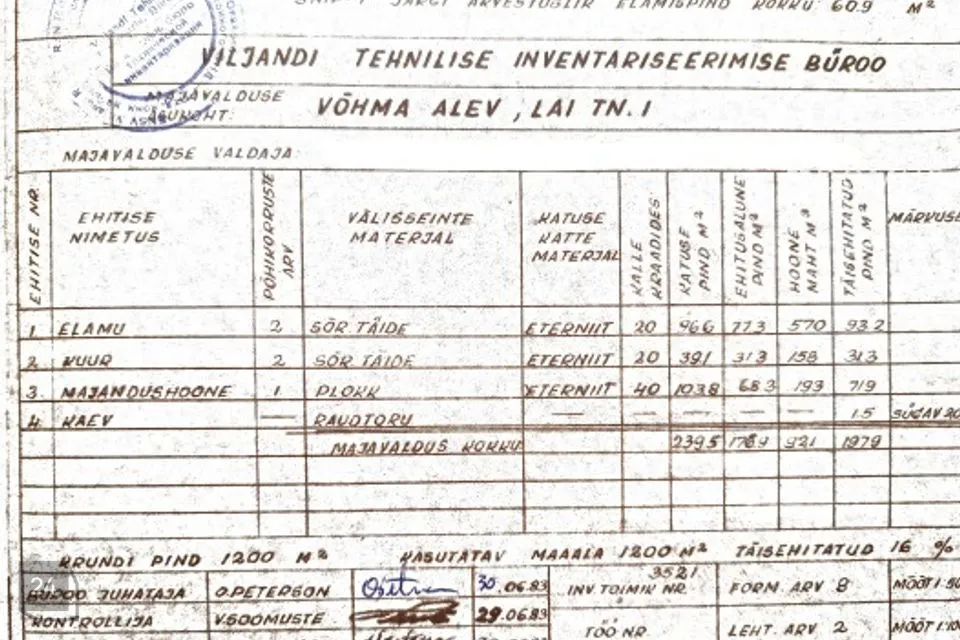 SNIP-I JÄRGI ARVESTUSLIK ELAMISPIND KOKKU 60.9 M²
VILJANDI TEHNILISE INVENTARISEERIMISE BÜROO
MAJAVALDUSE
ASUKOHT
VÕHMA ALEV, LAI TN. 1
MAJAVALDUSE VALDAJA:
EHITISE NR. EHITISE NIMETUS PÕHIKORRUSTE ARV VÄLISSEINTE MATERJAL KATUSE KATTE MATERJAL KALLE KRAADIDES KATUSE PIND M² EHITUSALUNE PIND M² HOONE MAHT M³ TÄISEHITATUD PIND M² MÄRKUSE
1. ELAMU 2 SÕR TÄIDE ETERNIIT 20 96.6 77.3 570 93.2
2. KUUR 2 SÕR TÄIDE ETERNIIT 20 39.1 31.3 158 31.3
3. MAJANDUSHOONE 1 PLOKK ETERNIIT 40 103.8 68.3 193 71.9
4. KAEV — RAUDTORU — — — — — 1.5 SÜGAV 20
MAJAVALDUS KOKKU 239.5 176.9 921 197.9
KRUNDI PIND 1200 M² KASUTATAV MAAALA 1200 M² TÄISEHITATUD 16 %
BÜROO JUHATAJA O.PETERSON 30.06.83 INV. TOIMIK NR. 3521 FORM. ARV 8 MÕÕT 1:50
KONTROLLIJA V.SOOMUSTE 29.06.83 TÖÖ NR. LEHT. ARV 2 MÕÕT 1:10
24